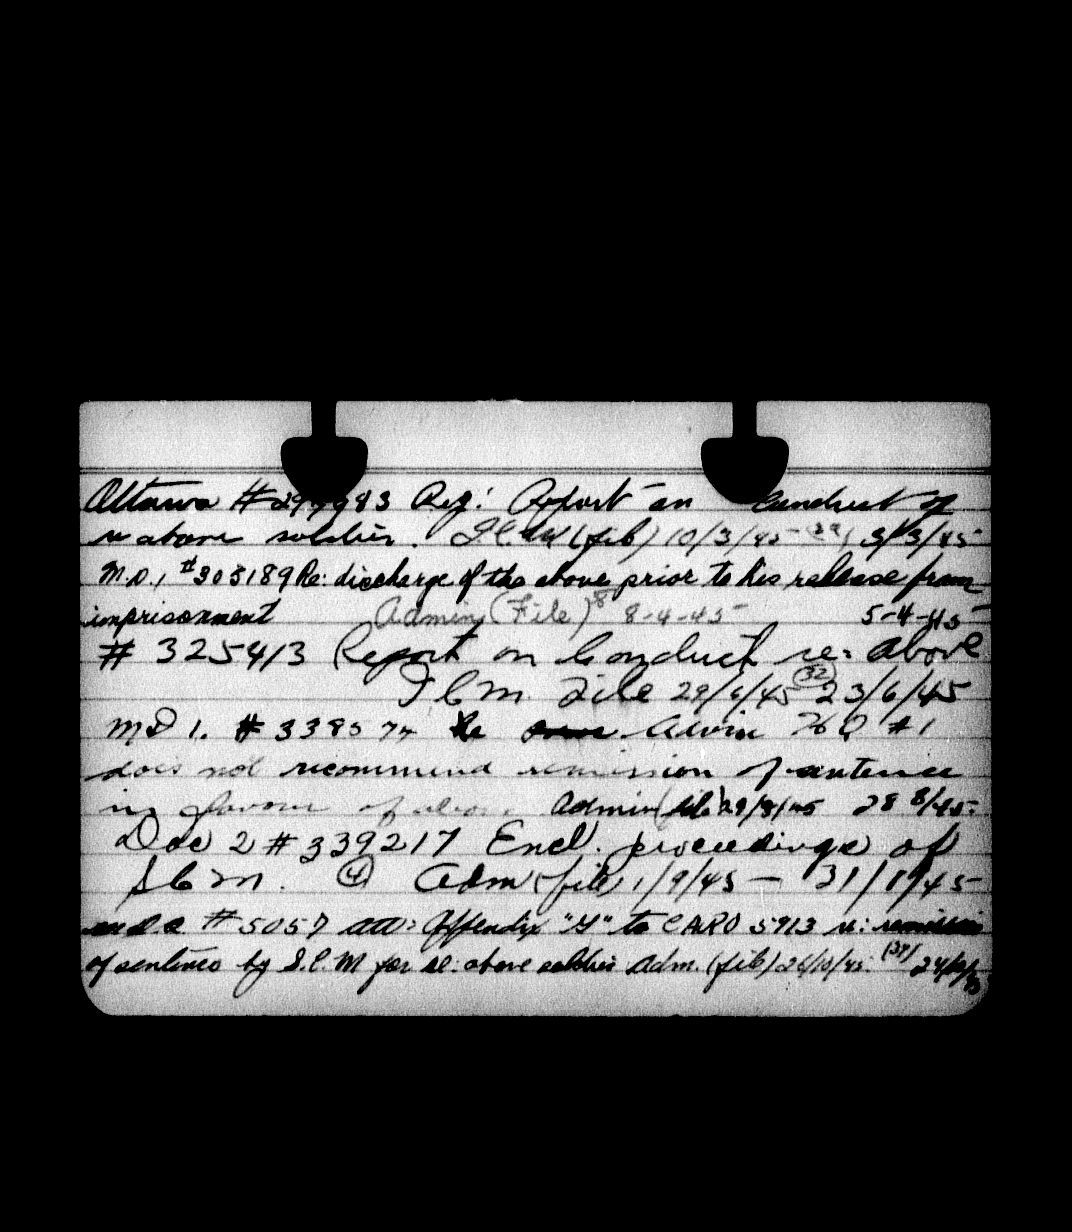 Ottawa # Reg: Report on Conduct of
above soldier. (file) 10/3/45 3/3/45
M.D. 1 #303189 Re: discharge of the above prior to his release from
imprisonment Admin (File) 8 8-4-45 5-4-45
# 325413 Report on Conduct re: above
File 29/6/45 (32) 23/6/45
MD 1. # 33857 Re Alvin HQ #1
does not recommend remission of sentence
in favour of above Admin (file) 29/8/45 28/8/45
Doc 2 # 339217 Encl. proceedings of
S C M. (4) Adm (file) 1/9/45 — 31/1/45
# 5057 att: Appendix "G" to CARO 5913 re: remission
of sentence by S.C.M for re: above soldier Adm. (file) 26/10/45 (37) 24/10/45